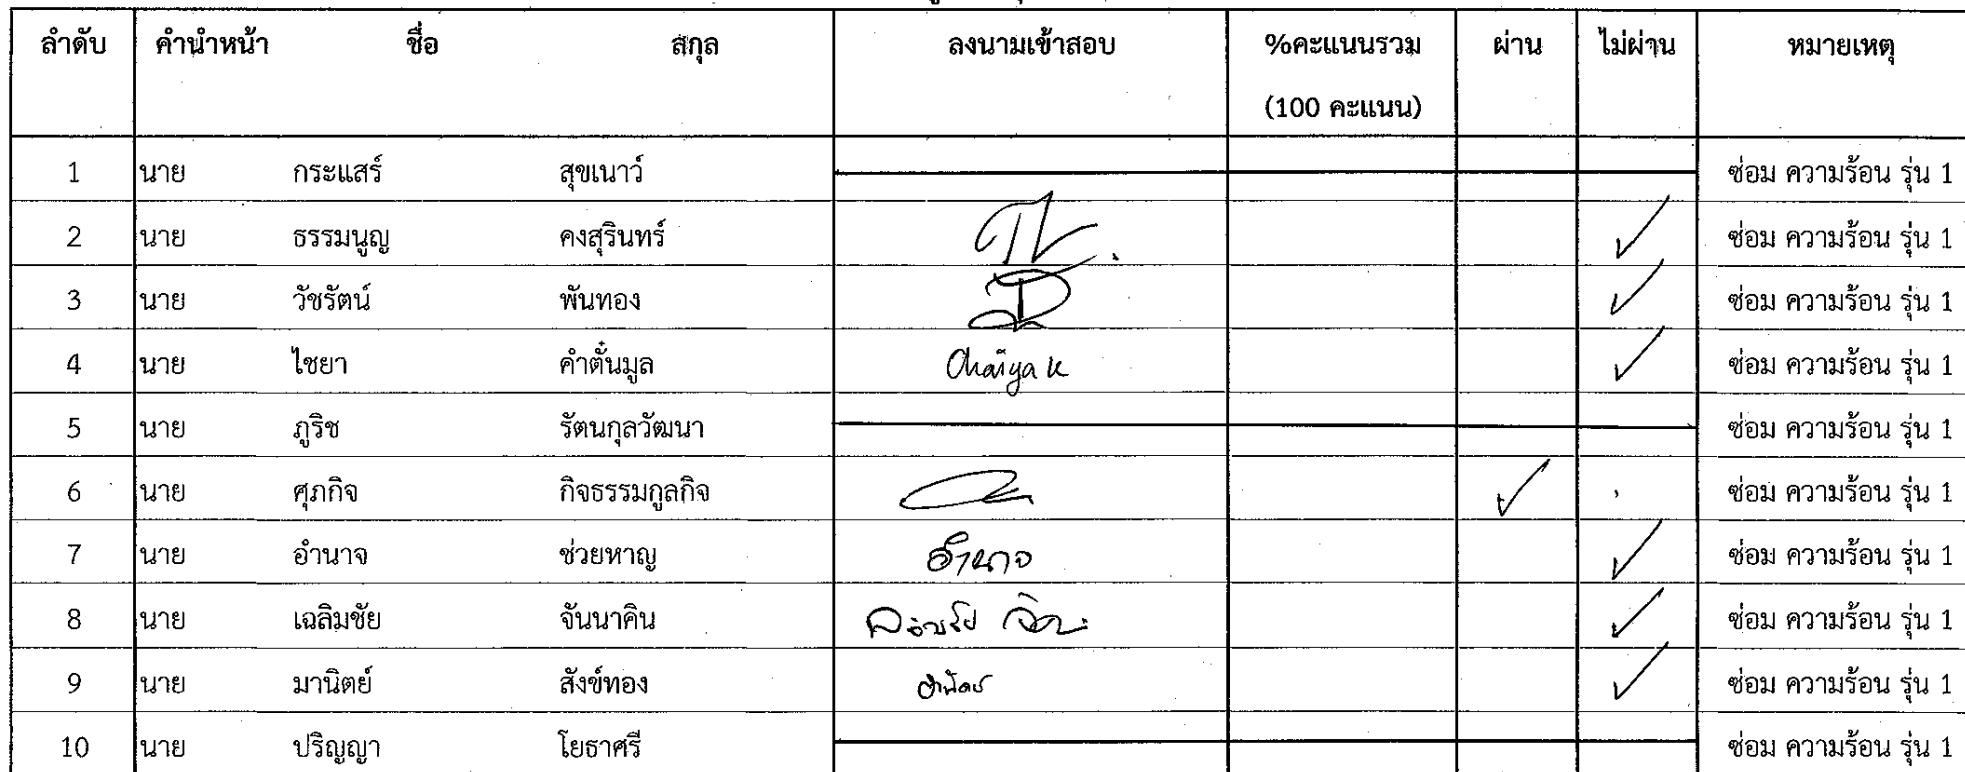 ลำดับ คำนำหน้า ชื่อ สกุล ลงนามเข้าสอบ %คะแนนรวม ผ่าน ไม่ผ่าน หมายเหตุ
(100 คะแนน)
1 นาย กระแสร์ สุขเนาว์ ซ่อม ความร้อน รุ่น 1
2 นาย ธรรมนูญ คงสุรินทร์ ✓ ซ่อม ความร้อน รุ่น 1
3 นาย วัชรัตน์ พันทอง ✓ ซ่อม ความร้อน รุ่น 1
4 นาย ไชยา คำตั๋นมูล Chaiya K ✓ ซ่อม ความร้อน รุ่น 1
5 นาย ภูริช รัตนกุลวัฒนา ซ่อม ความร้อน รุ่น 1
6 นาย ศุภกิจ กิจธรรมกูลกิจ ✓ ซ่อม ความร้อน รุ่น 1
7 นาย อำนาจ ช่วยหาญ อำนาจ ✓ ซ่อม ความร้อน รุ่น 1
8 นาย เฉลิมชัย จันนาคิน ✓ ซ่อม ความร้อน รุ่น 1
9 นาย มานิตย์ สังข์ทอง ✓ ซ่อม ความร้อน รุ่น 1
10 นาย ปริญญา โยธาศรี ซ่อม ความร้อน รุ่น 1